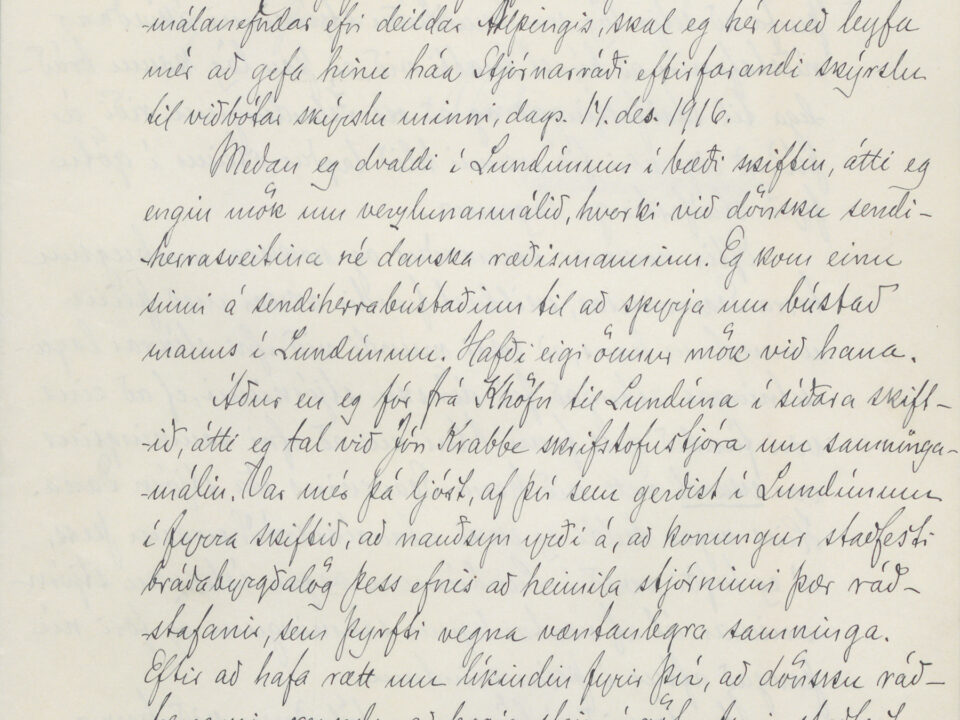 málanefndar efri deildar Alþingis, skal eg hér með leyfa
mér að gefa hinu háa Stjórnarráði eftirfarandi skýrslu
til viðbótar skýrslu minni, dags. 14. des. 1916.
Meðan eg dvaldi í Lundúnum í bæði skiftin, átti eg
engin mök um verzlunarmálið, hvorki við dönsku sendi-
herrasveitina né danska ræðismanninn. Eg kom einu
sinni á sendiherrabústaðinn til að spyrja um bústað
manns í Lundúnum. Hafði eigi önnur mök við hana.
Áður en eg fór frá Khöfn til Lundúna í síðara skift-
ið, átti eg tal við Jón Krabbe skrifstofustjóra um samninga-
málin. Var mér þá ljóst, af því sem gerðist í Lundúnum
í fyrra skiftið, að nauðsyn yrði á, að konungur staðfesti
bráðabyrgðalög þess efnis að heimila stjórninni þær ráð-
stafanir, sem þyrfti vegna væntanlegra samninga.
Eftir að hafa rætt um líkindin fyrir því, að dönsku ráð-